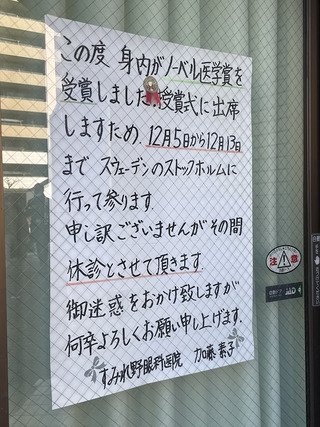 この度 身内がノーベル医学賞を
受賞しました。授賞式に出席
しますため、12月5日から12月13日
まで スウェーデンのストックホルムに
行って参ります。
申し訳ございませんがその間
休診とさせて頂きます。
御迷惑をおかけ致しますが
何卒よろしくお願い申し上げます。
すみれ野眼科医院 加藤 素子
注意